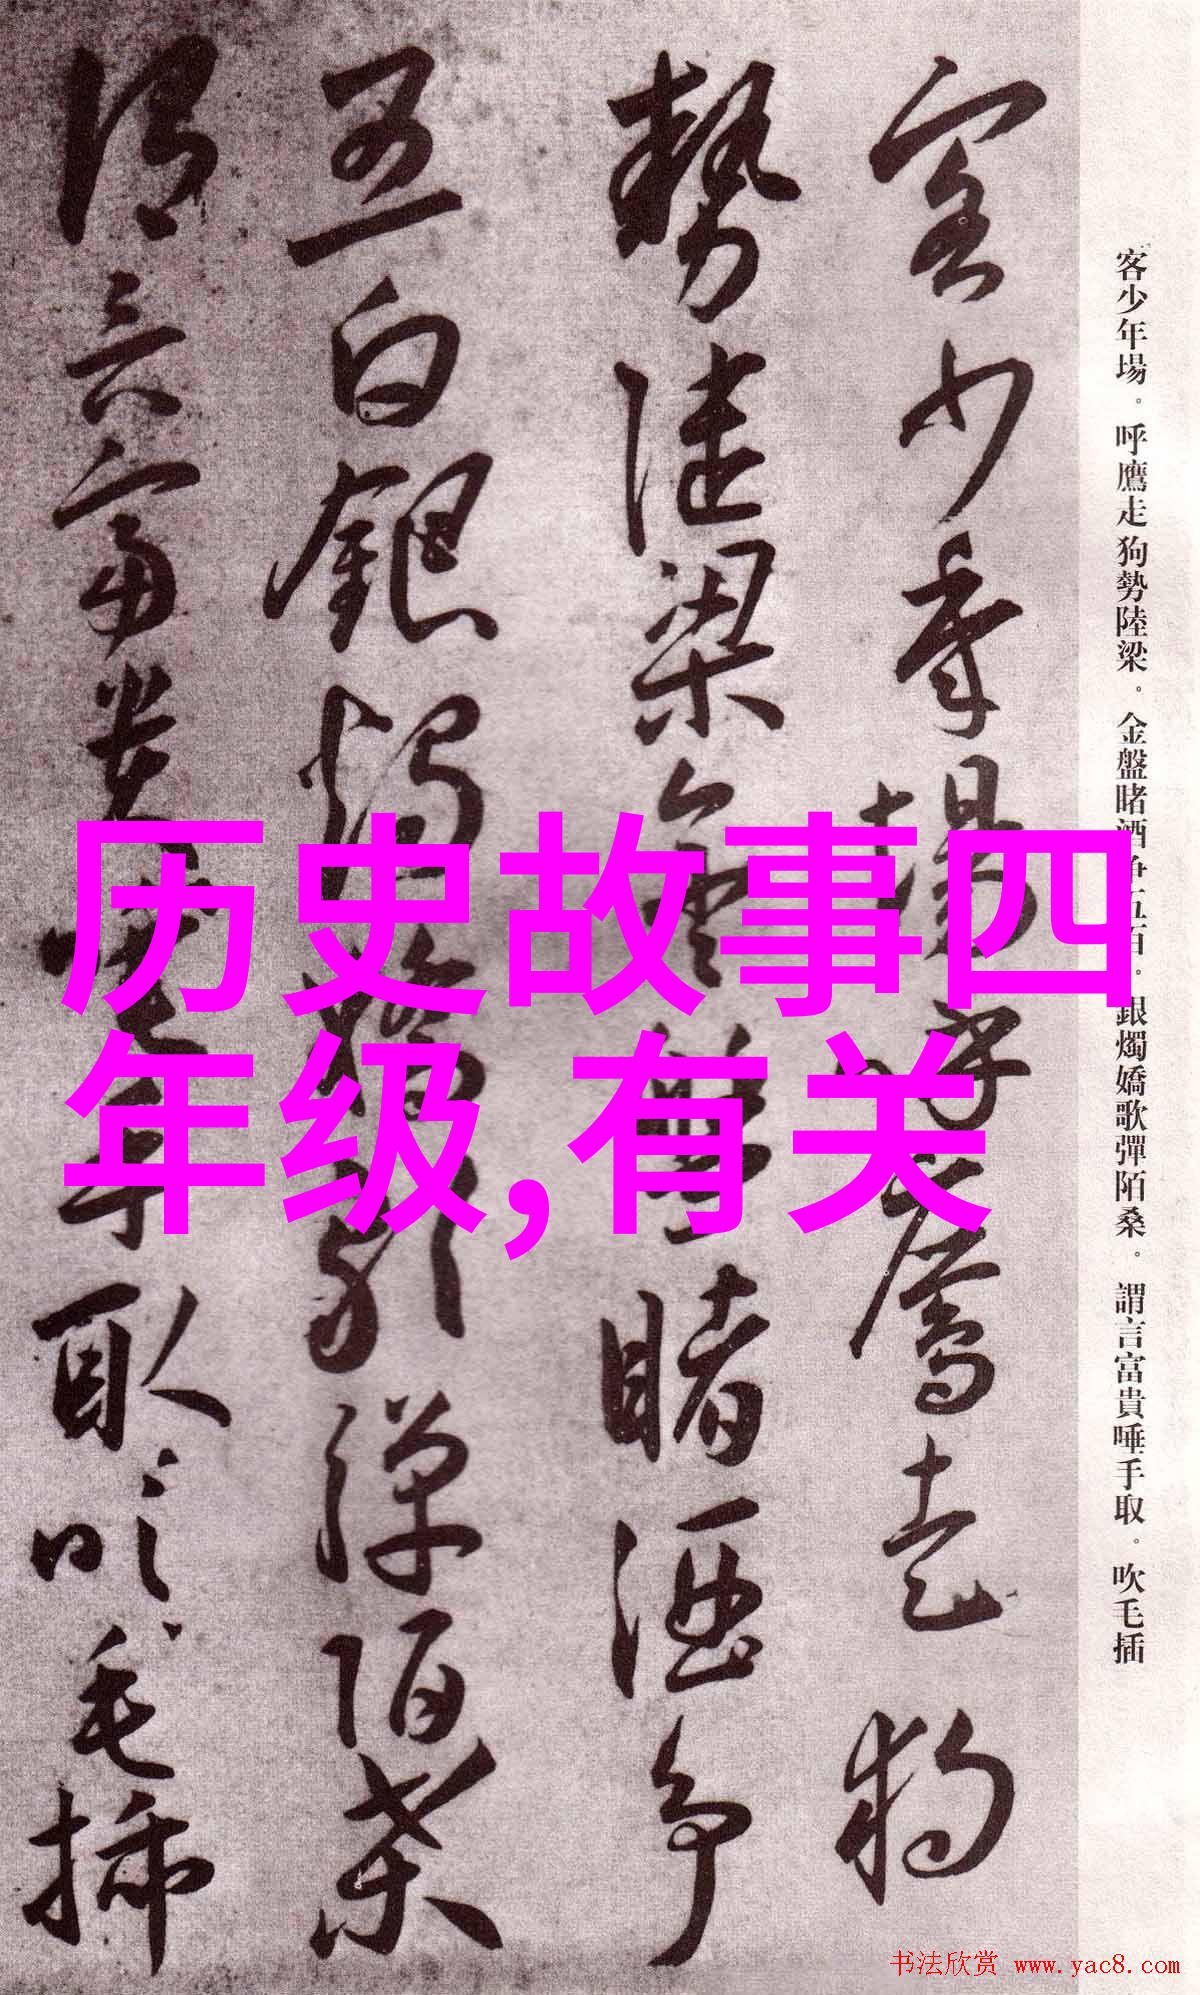 客少年場呼鷹走狗
勢陸梁金盤賭酒爭
五白銀燭嬌歌彈陌桑
謂言富貴唾手取吹毛插
客少年場。呼鷹走狗勢陸梁。金盤賭酒爭五百。銀燭嬌歌彈陌桑。謂言富貴唾手取。吹毛插
历史故事四
年级,有关
书法欣赏 www.yac8.com